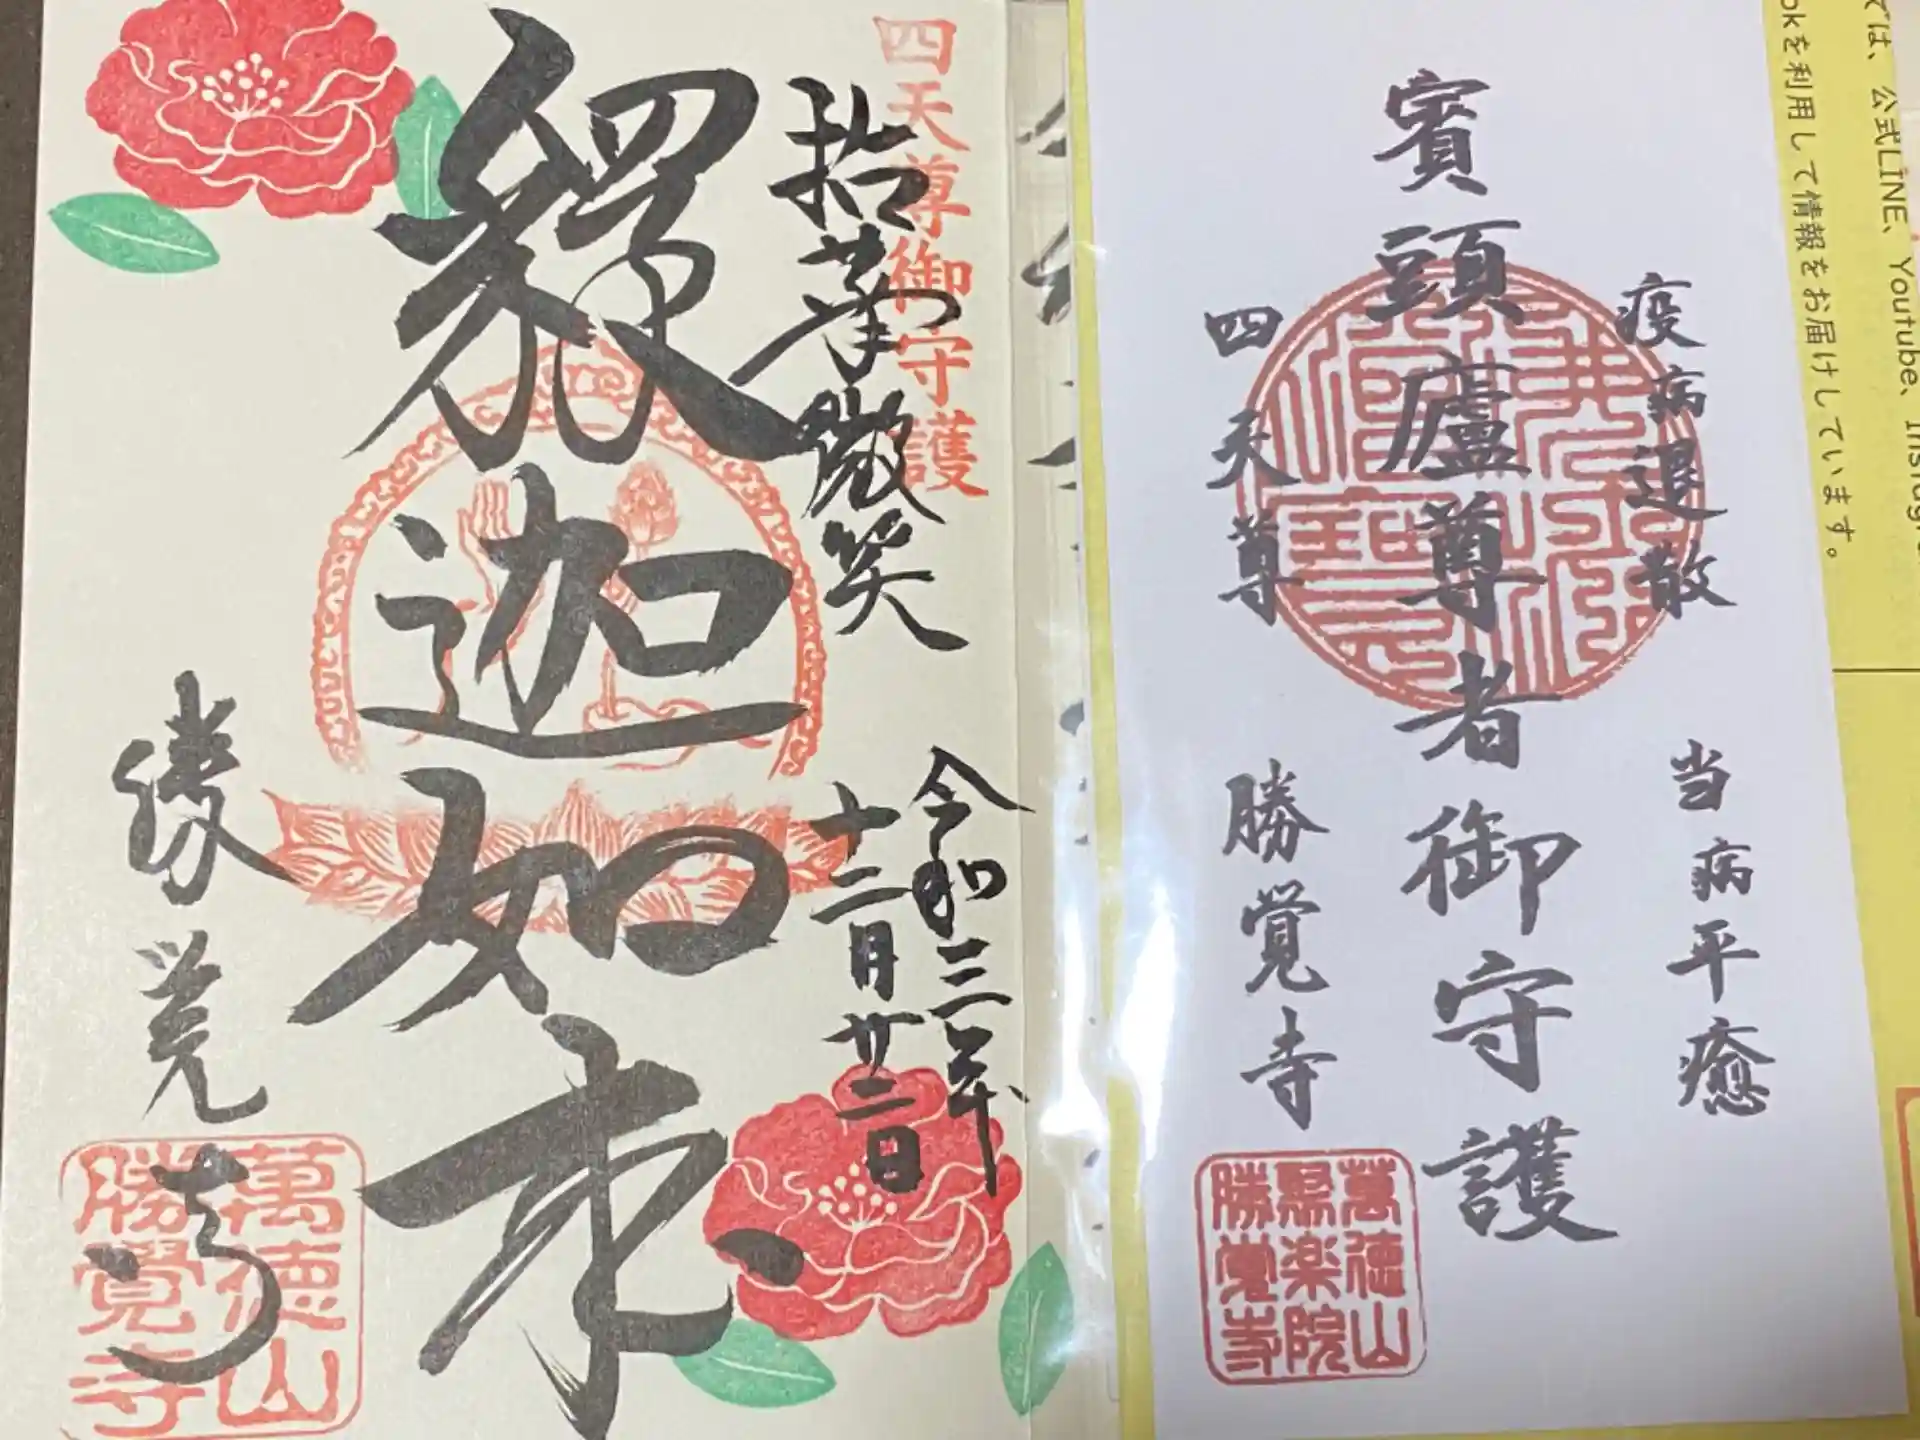 四天尊御守護
拈華微笑
令和三年
十二月廿二日
釋迦如来
勝覚寺
萬徳山
勝覺寺
疫病退散
当病平癒
賓頭廬尊者御守護
四天尊
勝覚寺
萬徳山
聚楽院
勝覚寺
では、公式LINE、Youtube、Instagr
okを利用して情報をお届けしています。